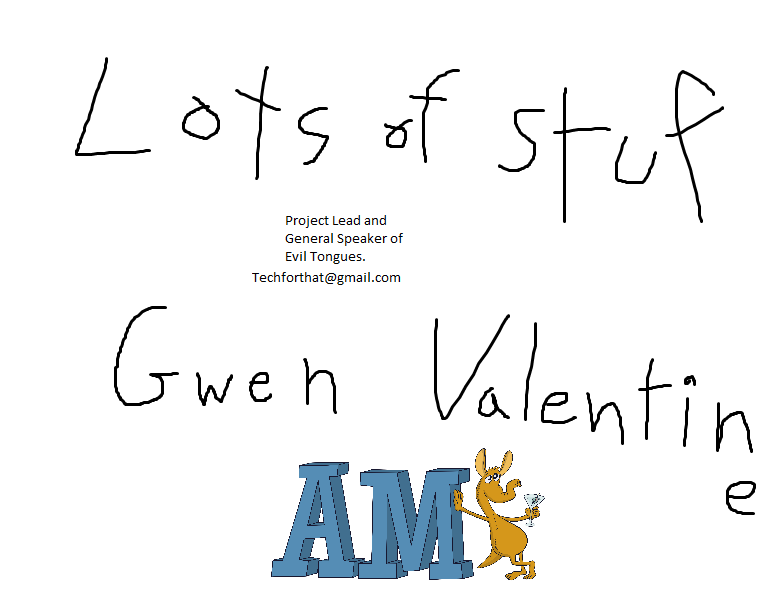 Lots of stuf
Project Lead and
General Speaker of
Evil Tongues.
Techforthat@gmail.com
Gwen Valentin
e
AM